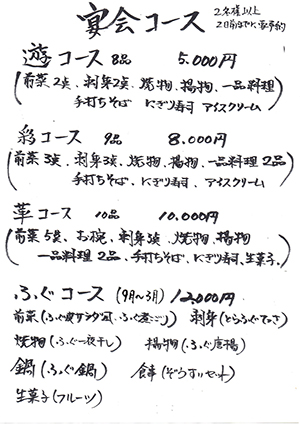 宴会コース
2名様以上
2日前までに要予約
遊コース 8品 5.000円
(前菜2項、刺身2項、焼物、揚物、一品料理
手打ちそば、にぎり寿司 アイスクリーム)
彩コース 9品 8.000円
(前菜3項、刺身3項、焼物、揚物、一品料理2品
手打ちそば、にぎり寿司、アイスクリーム)
華コース 10品 10.000円
(前菜5項、お椀、刺身3項、焼物、揚物
一品料理2品、手打ちそば、にぎり寿司、生菓子)
ふぐコース (9月〜3月) 12,000円
前菜(ふぐ皮サラダ 刺身(とらふぐてっさ)
焼物(ふぐ一夜干し) 揚物(ふぐ唐揚)
鍋(ふぐ鍋) 食事(ぞうすいセット)
生菓子(フルーツ)